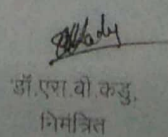 डॉ.एस.वी.कडु,
निमंत्रित